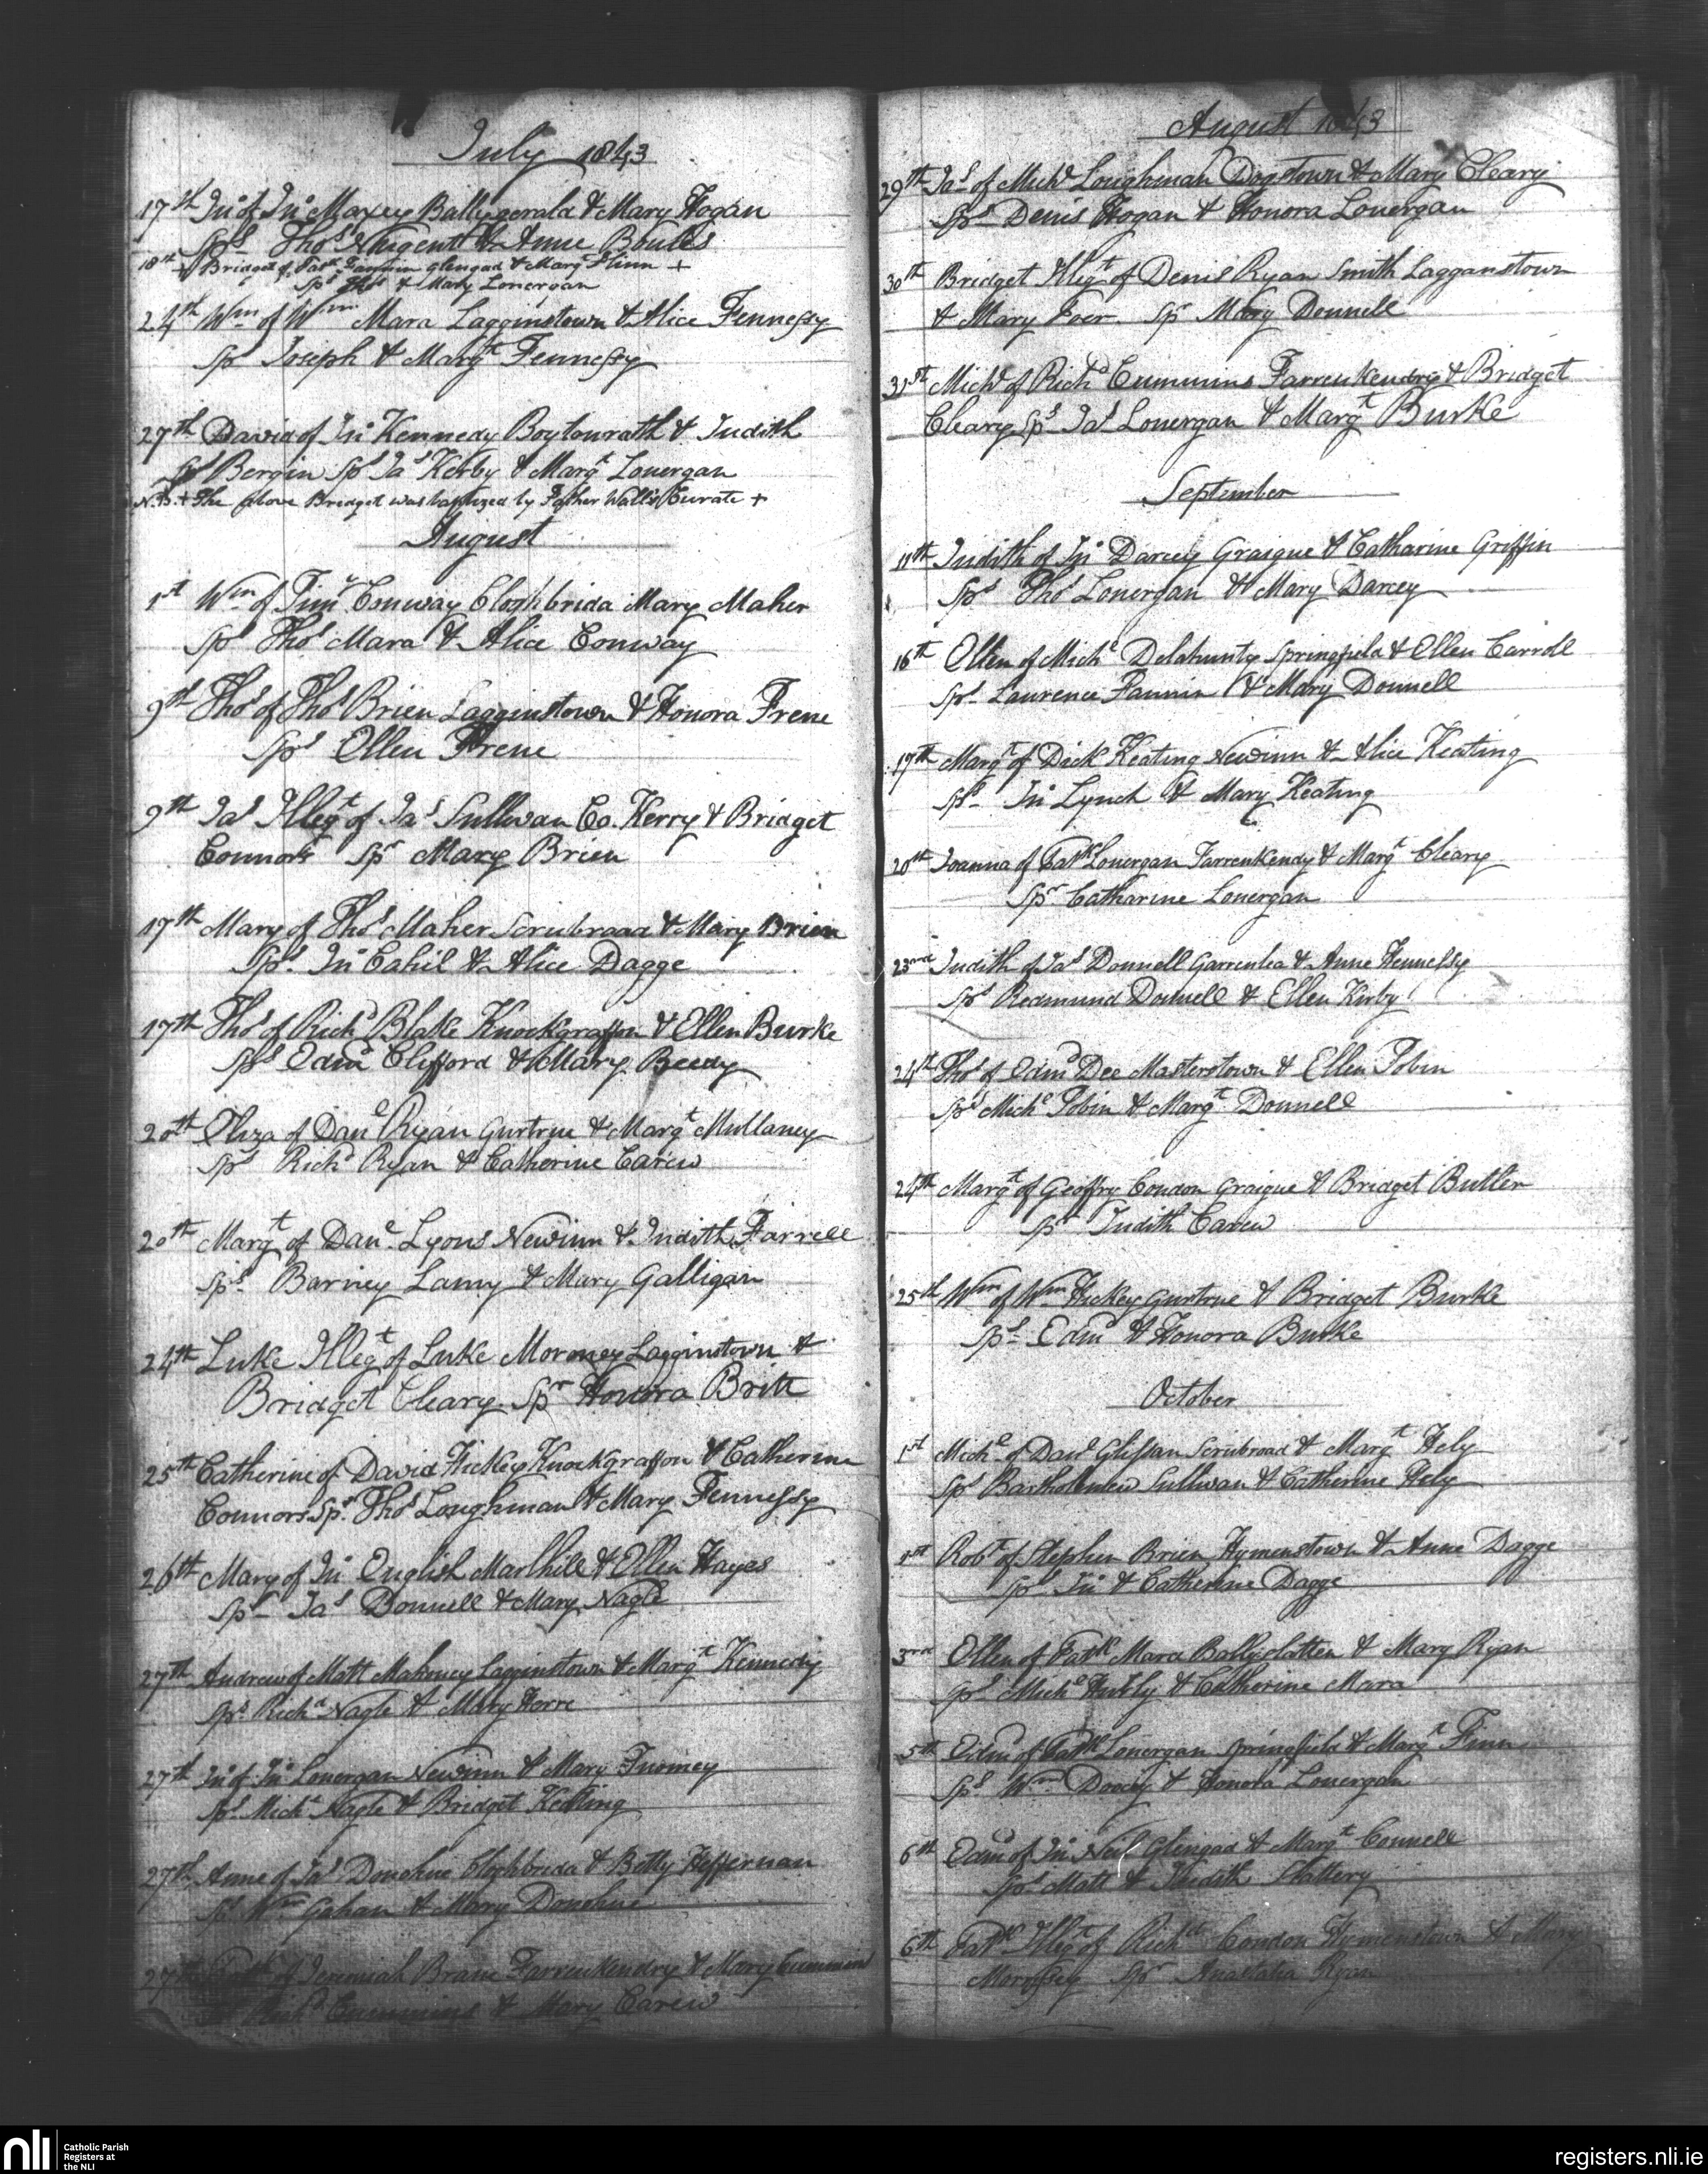 July 1843
17th Jno of Jno Maxey Ballygerald & Mary Hogan
Sps Thos Nugent & Anne Boules
18th + Bridget of Patk Fannin Glengad & Margt Flinn +
Sps Thos & Mary Lonergan
24th Wm of Wm Mara Lagginstown & Alice Fennessy
Sps Joseph & Margt Fennessy
27th David of Jno Kennedy Boytonrath & Judith
Bergin Sps Jas Kirby & Margt Lonergan
N.B. + The above Bridget was baptized by Father Walls Curate +
August
1st Wm of Timy Conway Cloghbrida Mary Maher
Sps Thos Mara & Alice Conway
9th Thos of Thos Brien Lagginstown & Honora Frene
Sps Ellen Frene
9th Jas Illegt of Jas Sullivan Co. Kerry & Bridget
Connors Spr Mary Brien
17th Mary of Thos Maher Scrubroad & Mary Brien
Sps Jno Cahil & Alice Dagge
17th Thos of Richd Blake Knockgraffon & Ellen Burke
Sps Edmd Clifford & Mary Beedy
20th Eliza of Danl Ryan Gurtrue & Margt Mullaney
Sps Richd Ryan & Catherine Carew
20th Margt of Danl Lyons Newinn & Judith Farrell
Sps Barney Lamy & Mary Galligan
24th Luke Illegt of Luke Moroney Lagginstown &
Bridget Cleary Spr Honora Britt
25th Catherine of David Hickey Knockgraffon & Catherine
Connors Sps Thos Loughman & Mary Fennessy
26th Mary of Jno English Marlhill & Ellen Hayes
Sps Jas Donnell & Mary Nagle
27th Andrew of Matt Mahoney Lagginstown & Margt Kennedy
Sps Richd Nagle & Mary Horre
27th Jno of Jno Lonergan Newinn & Mary Tuomey
Sps Michl Nagle & Bridget Keating
27th Anne of Jas Donohue Cloghbrida & Betty Heffernan
Sps Wm Gahan & Mary Donohue
27th Patk of Jeremiah Brane Farrenkendry & Mary Cummins
Richd Cummins & Mary Carew
August 1843
29th Jas of Michl Loughman Dogstown & Mary Cleary
Sps Denis Hogan & Honora Lonergan
30th Bridget Illegt of Denis Ryan Smith Lagganstown
& Mary Poer. Spr Mary Donnell
31st Michl of Richd Cummins Farrenkendry & Bridget
Cleary Sps Jas Lonergan & Margt Burke
September
11th Judith of Jno Darcey Graigue & Catharine Griffin
Sps Thos Lonergan & Mary Darcey
16th Ellen of Michl Delahunty Springfield & Ellen Carroll
Sps Laurence Fannin & Mary Donnell
17th Margt of Dick Keating Newinn & Alice Keating
Sps Jno Lynch & Mary Keating
20th Joanna of Patk Lonergan Farrenkendy & Margt Cleary
Spr Catharine Lonergan
23rd Judith of Jas Donnell Garrenlea & Anne Hennessy
Sps Redmund Donnell & Ellen Kirby
24th Thos of Edmd Dee Masterstown & Ellen Tobin
Sps Michl Tobin & Margt Donnell
24th Margt of Geoffry Condon Graigue & Bridget Butler
Spr Judith Carew
25th Wm of Wm Hickey Gurtrue & Bridget Burke
Sps Edmd & Honora Burke
October
1st Michl of Danl Glissan Scrubroad & Margt Hely
Sps Bartholomew Sullivan & Catherine Hely
1st Robt of Stephen Brien Hymenstown & Anne Dagge
Sps Jno & Catherine Dagge
3rd Ellen of Patk Mara Ballyslatten & Mary Ryan
Sps Michl Hurly & Catherine Mara
5th Edmd of Patk Lonergan Springfield & Margt Finn
Sps Wm Doocey & Honora Lonergan
6th Edmd of Jno Neil Glengad & Margt Connell
Sps Matt & Judith Slattery
6th Patk Illegt of Richd Condon Hymenstown & Mary
Spr Anastatia Ryan
nli
Catholic Parish
Registers at
the NLI
registers.nli.ie